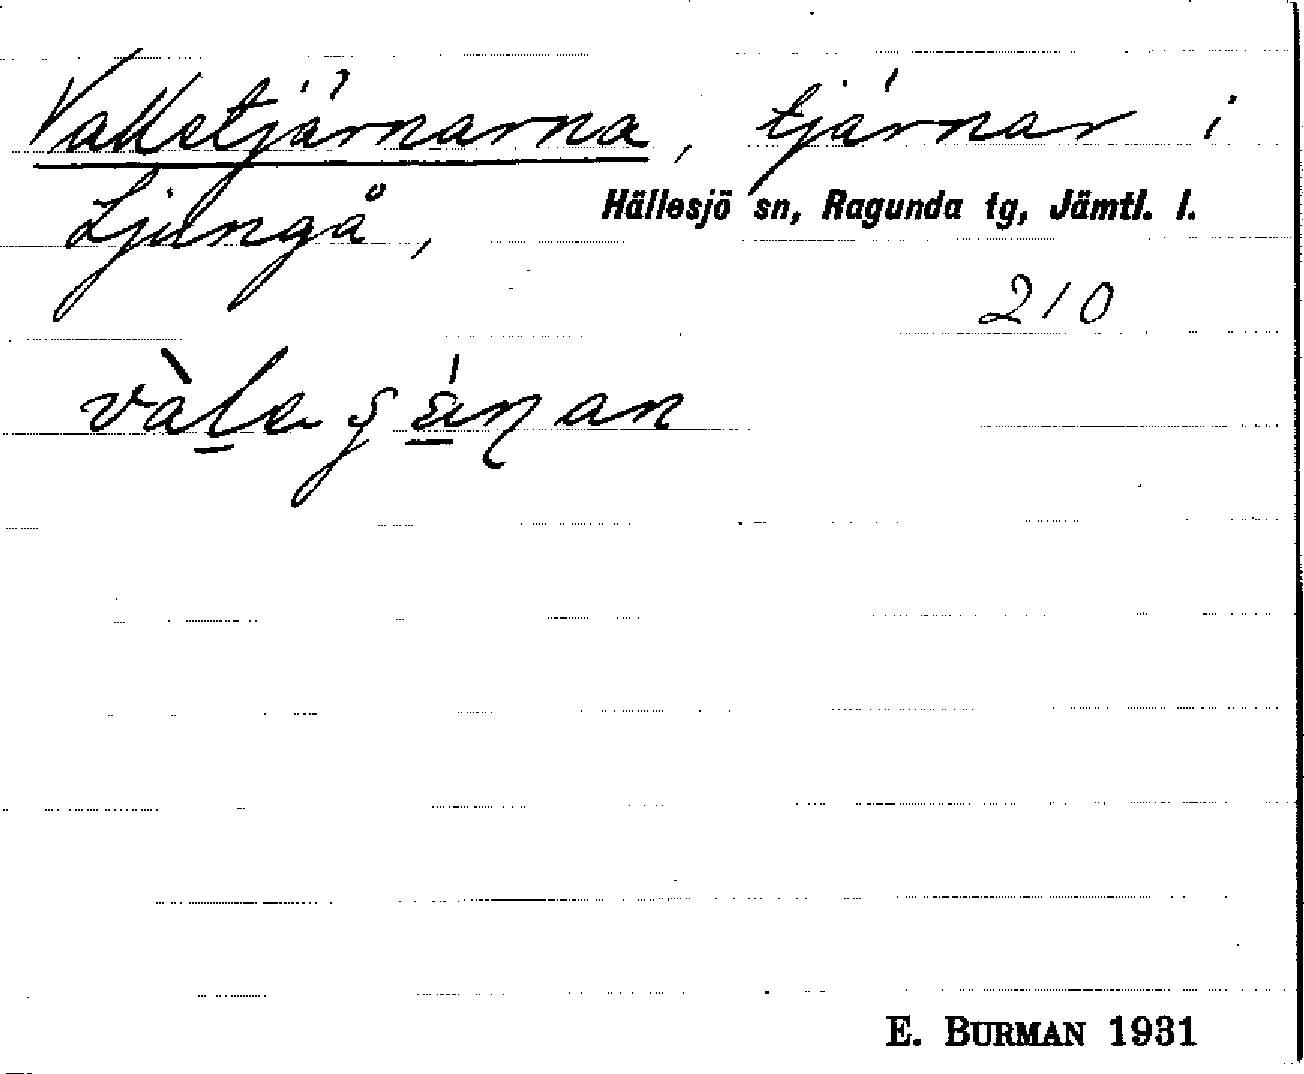 Valletjärnarna, tjärnar i
Ljungå, Hällesjö sn, Ragunda tg, Jämtl. l.
210
E. BURMAN 1931